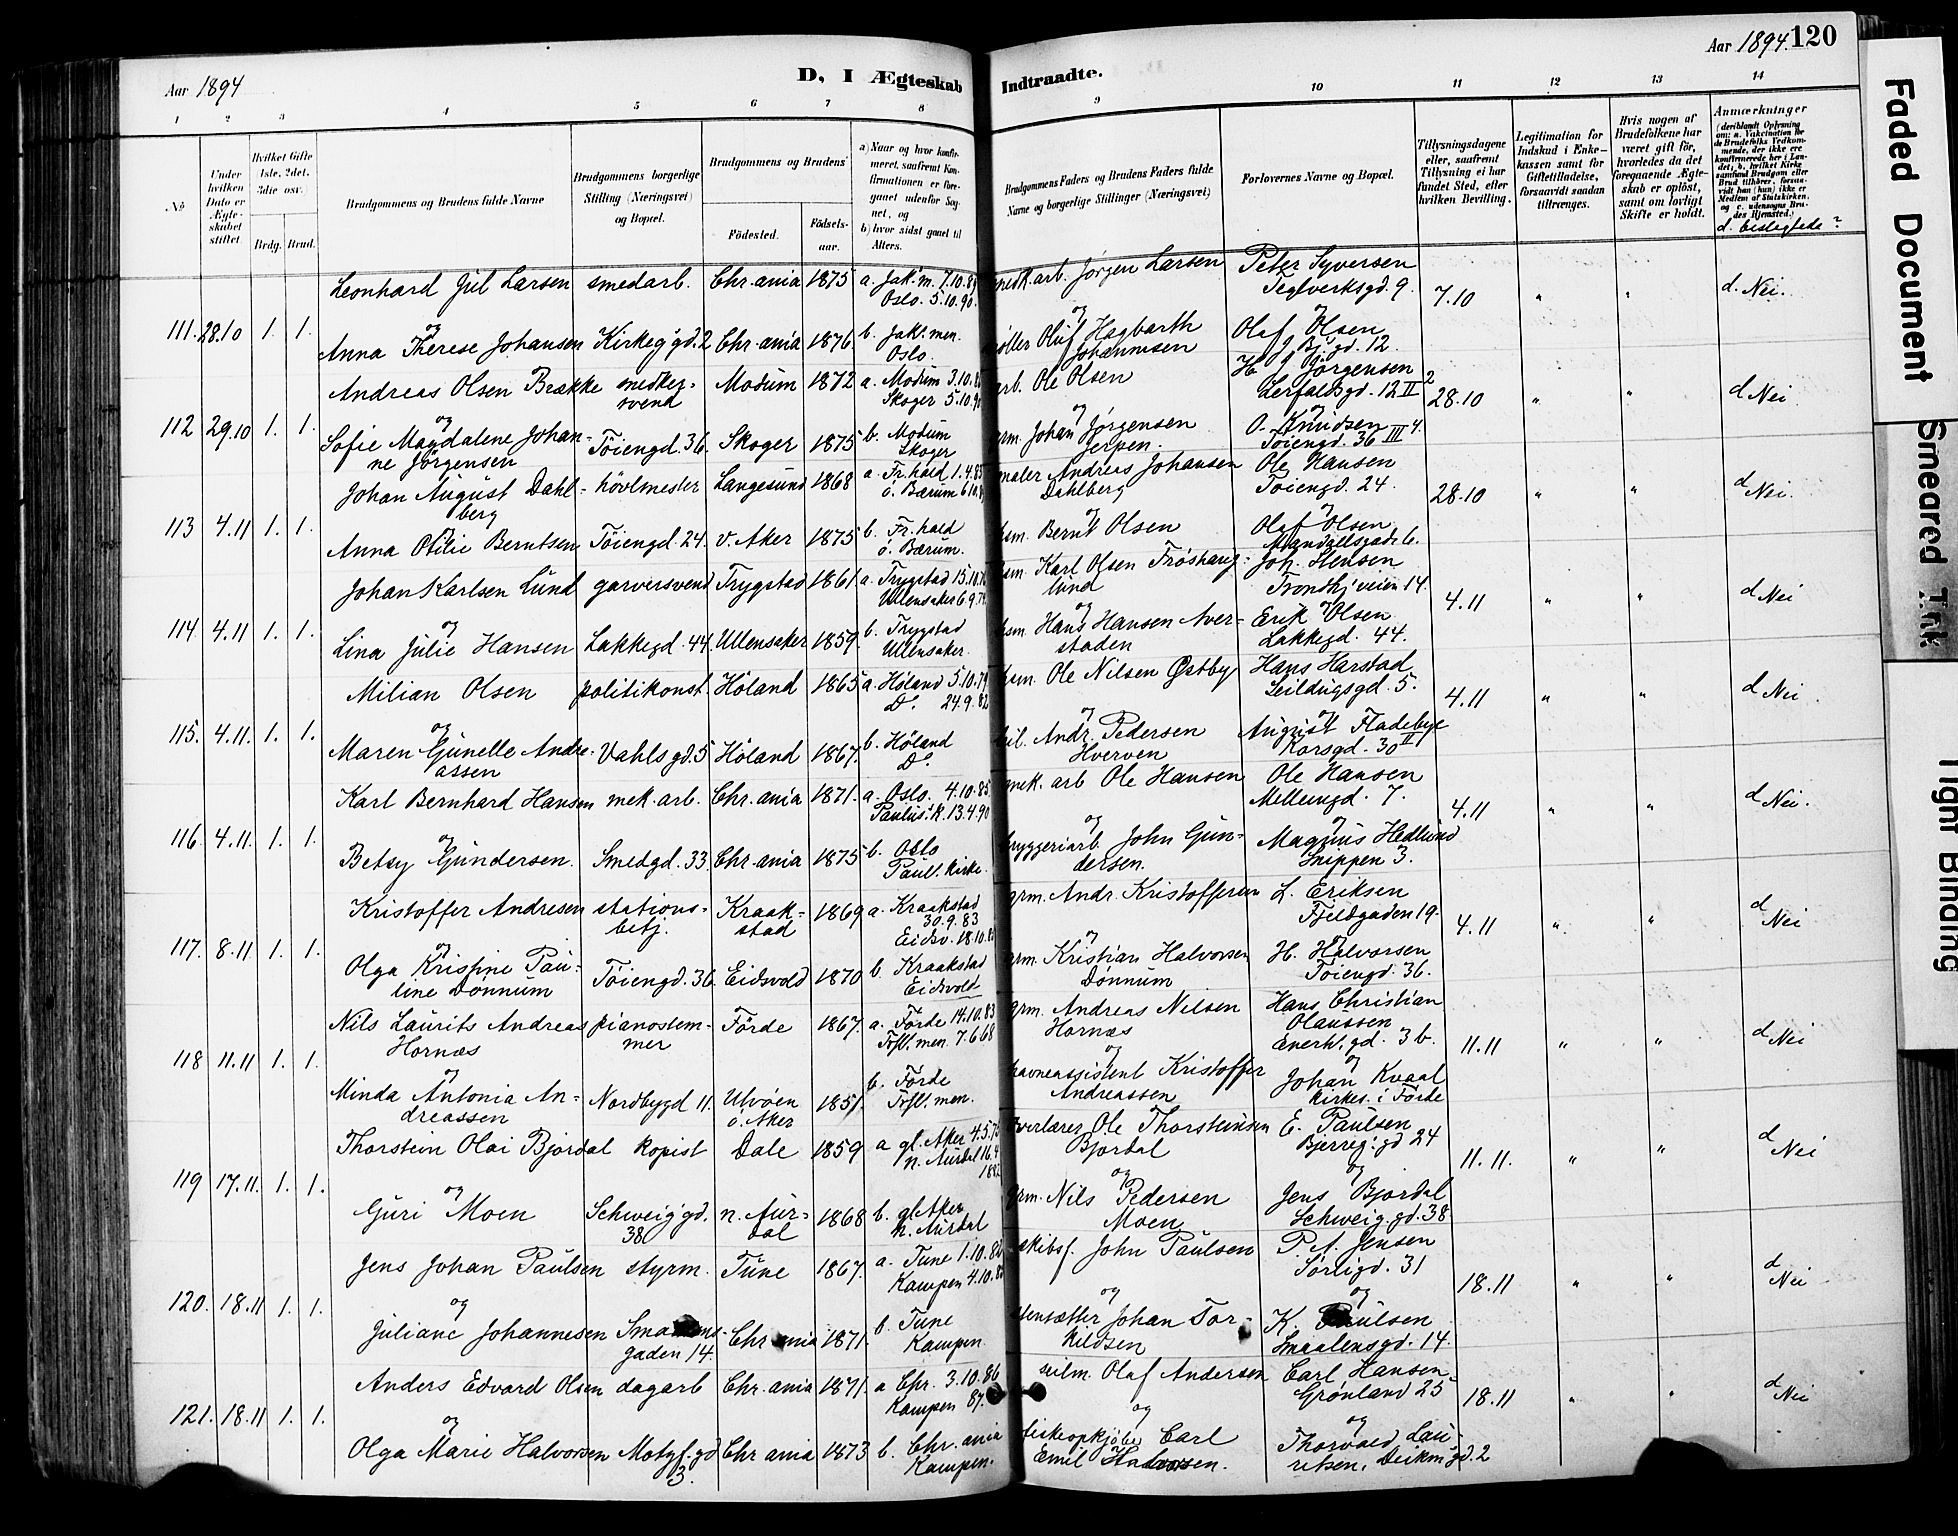 Aar 1894
D, I Ægteskab Indtraadte.
Aar 1894. 120
1 2 3 4 5 6 7 8 9 10 11 12 13 14
No
Under hvilken Dato er Ægteskabet stiftet
Hvilket Gifte 1ste, 2det, 3die osv.
Brdg. Brud.
Brudgommens og Brudens fulde Navne
Brudgommens borgerlige Stilling (Næringsvei) og Bopæl.
Brudgommens og Brudens
Fødested.
Fødsels-aar.
a) Naar og hvor konfirmeret, saafremt Konfirmationen er foregaaet udenfor Sognet, og
b) hvor sidst gaaet til Alters.
Brudgommens Faders og Brudens Faders fulde Navne og borgerlige Stillinger (Næringsvei)
Forlovernes Navne og Bopæl.
Tillysningsdagene eller, saafremt Tillysning ei har fundet Sted, efter hvilken Bevilling.
Legitimation for Indskud i Enkekassen samt for Giftetilladelse, forsaavidt saadan tiltrænges.
Hvis nogen af Brudefolkene har været gift før, hvorledes da det foregaaende Ægteskab er opløst, samt om lovligt Skifte er holdt.
Anmærkninger
(deriblandt Oplysning om: a. Vakcination for de Brudefolks Vedkommende, der ikke ere konfirmerede her i Landet; b. hvilket Kirkesamfund Brudgom eller Brud tilhører, forsaavidt han (hun) ikke er Medlem af Statskirken, og c. udensogns Brudes Hjemsted.)
d. beslægtede?
111. 28.10 1. 1.
Leonhard Jul Larsen smedarb. Chr.ania 1875 a. Jak.m. 7.10.8
Oslo. 5.10.90.
arb. Jørgen Larsen Peter Syversen
Teglverksgd. 9. 7.10 " " d. Nei.
og
Anna Therese Johansen Kirkeg'gd. 2 Chr.ania 1876 b. Jak.men.
Oslo.
Oluf Hagbarth
Johannesen
Olaf Olsen
Bj'gd. 12.
112 29.10 1. 1.
Andreas Olsen Brække snedker-
svend Modum 1872 a. Modum 3.10.8
Skoger 5.10.9
arb. Ole Olsen H. J. Jörgensen
Lerfaldsgd. 12 II 2 28.10 " " d Nei
og
Sofie Magdalene Johan-
ne Jörgensen Töiengd. 36. Skoger 1875 b. Modum
Skoger
grm. Johan Jørgensen
Jerpen.
O. Knudsen
Töiengd. 36 III 4.
113 4.11 1. 1.
Johan August Dahl-
berg hövlmester Langesund 1868 a. Fr.hald 1.4.83
ö. Bærum 6.10.
maler Andreas Johansen
Dahlberg
Ole Hansen
Töiengd. 24. 28.10 " " d Nei.
og
Anna Otilie Berntsen Töiengd. 24. v. Aker 1875 b. Fr.hald
ö. Bærum.
hsm. Bernt Olsen Olaf Olsen
Mandallsgade 6.
114. 4.11 1. 1.
Johan Karlsen Lund garversvend Trygstad 1861. a. Trygstad 15.10.7
Ullensaker 6.9.7
hsm. Karl Olsen Fröshaug-
lund
Joh. Jensen
Trondhj'veien 14. 4.11 " " d Nei
og
Lina Julie Hansen Lakkegd. 44. Ullensaker 1859. b. Trygstad
Ullensaker.
hsm. Hans Hansen Aver-
staden
Erik Olsen
Lakkegd. 44.
115. 4.11. 1. 1.
Milian Olsen politikonst. Höland 1865 a. Höland 5.10.79
Do. 24.9.82
hsm. Ole Nilsen Østby Hans Harstad
Seildugsgd. 5. 4.11 " " d Nei
og
Maren Gunelle Andre-
assen Vahls gd. 5 Höland 1867. b. Höland
Do.
Andr. Pedersen
Hverven
August Fladebye
Korsgd. 30 II
116. 4.11. 1. 1.
Karl Bernhard Hansen mek.arb. Chr.ania 1871. a. Oslo. 4.10.85
Paulus.k. 13.4.90
mek. arb Ole Hansen Ole Hansen
Mellemgd. 7. 4.11 " " d Nei.
og
Betsy Gundersen. Smedgd. 33. Chr.ania 1875 b. Oslo
Paul. kirke.
bryggeriarb. John Gun-
dersen.
Magnus Hedlund
Snippen 3.
117. 8.11. 1. 1.
Kristoffer Andresen stations-
betj. Kraak-
stad 1869 a. Kraakstad
30.9.83
Eidsv. 18.10.8
grm. Andr. Kristoffersen L. Eriksen
Fjeldgaden 19. 4.11 " " d Nei
og
Olga Kristine Pau-
line Dönnum Töiengd. 36. Eidsvold 1870 b. Kraakstad
Eidsvold
grm. Kristian Halvorsen
Dønnum
H. Halvorsen
Töiengd. 36.
118 11.11 1. 1.
Nils Laurits Andreas
Hornæs pianostem-
mer Förde 1867. a. Förde 14.10.83
Frfl. men. 7.6.68
grm. Andreas Nilsen
Hornæs
Hans Christian
Olaussen
Enerh. gd. 3 b. 11.11 " " d Nei
og
Minda Antonia An-
dreassen Nordbygd 11. Ulvöen
ö. Aker 1851. b. Förde
Frfl. men.
havneassistent Kristoffer
Andreassen
Johan Kvaal
Kirkes. i Förde
119 17.11. 1. 1.
Thorstein Olai Bjordal kopist Dale 1859 a gl. Aker 4.5.7
n. Aurdal 16.4
188
Overlærer Ole Thorsteinsen
Bjordal
E. Paulsen
Bjerreg'gd 24 11.11. " " d Nei
og
Guri Moen Schweig'gd.
38 n. Aur-
dal 1868 b. gl. Aker
n. Aurdal
grm. Nils Pedersen
Moen
Jens Bjordal
Schweig.gd. 38
120. 18.11 1. 1.
Jens Johan Paulsen styrm. Tune 1867. a. Tune 1.10.8
Kampen 4.10.8
skibsf. John Paulsen P. A. Jensen
Sörligd. 31 18.11 " " d Nei
og
Juliane Johannesen
gaden 14. Chr.ania 1871. b. Tune
Kampen.
stensætter Johan Tor-
kildsen
K. Paulsen
Smaalensgd. 14.
121. 18.11 1. 1.
Anders Edvard Olsen dagarb Chr.ania 1871. a Chr. 3.10.86
Kampen 87.
seilm. Olaf Andersen Carl Hansen
Grönland 25 18.11 " " d Nei
og
Olga Marie Halvorsen Motzf.gd
3. Chr.ania 1873 b. Chr.ania
Kampen.
fiskeopkjøber Carl
Emil Halvorsen.
Thorvald Lau-
ritsen. Deikm'gd. 2
Faded Document
Smeared Ink
Tight Binding